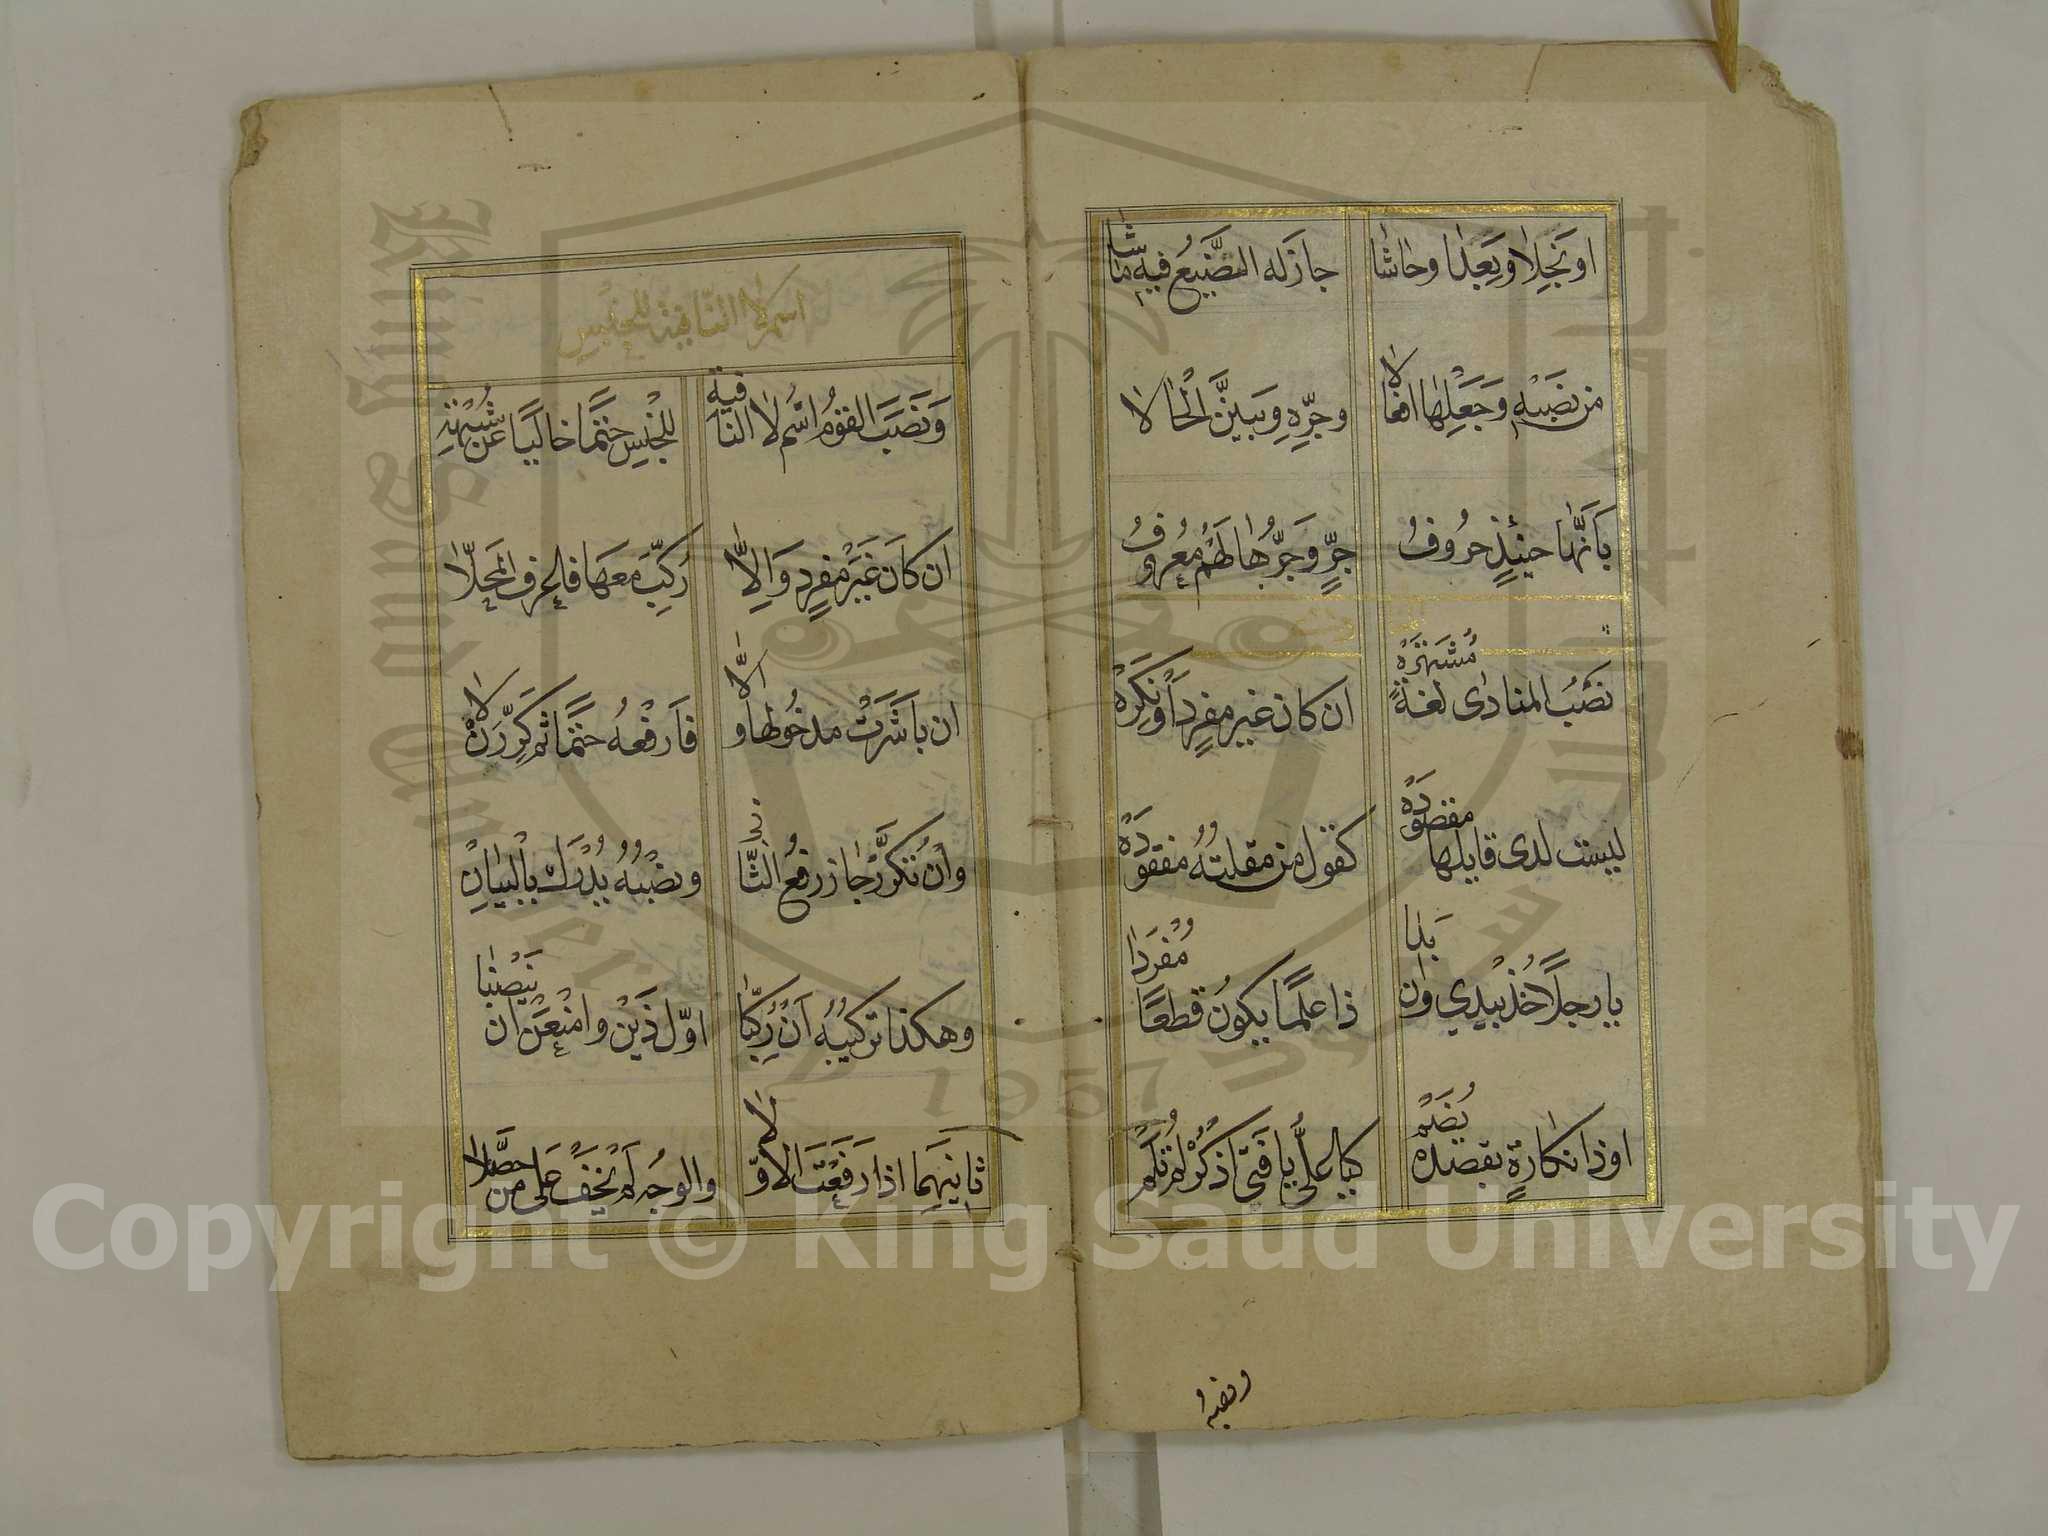 او بخلا وبعدا وحاشا جاز له الصنيع فيه ما شا
من نصبه وجعلها افعالا وجرّه وبين الحالا
بانها حينئذ حروف جرّ وجرّها لهم معروف
نصب المنادى لغة مشتهرة ان كان غير مفرد او نكرة
ليست لدى قايلها مقصودة كقول من مقلته مفقودة
يا رجلا خذ بيدي وان بدا ذا علما يكون قطعا مفردا
او ذا نكارة بقصده يضم كيا علي يا فتى اذكر لم تلم
ونصب
اسم لا النافية للجنس
ونصب القوم اسم لا النافية للجنس حتما خاليا عن شبهة
ان كان غير مفرد والا ركب معها فالحرف المحلا
ان باشرت مدخولها والا فارفعه حتما ثم كررن لا
وان تكرر جاز رفع الثاني ونصبه يدرك بالبيان
وهكذا تركيبه ان ركبا اول ذين وامنعن ان ينصبا
ثانيهما اذا رفعت الاولا والوجه لم يخف على من حصلا
Copyright © King Saud University
1957